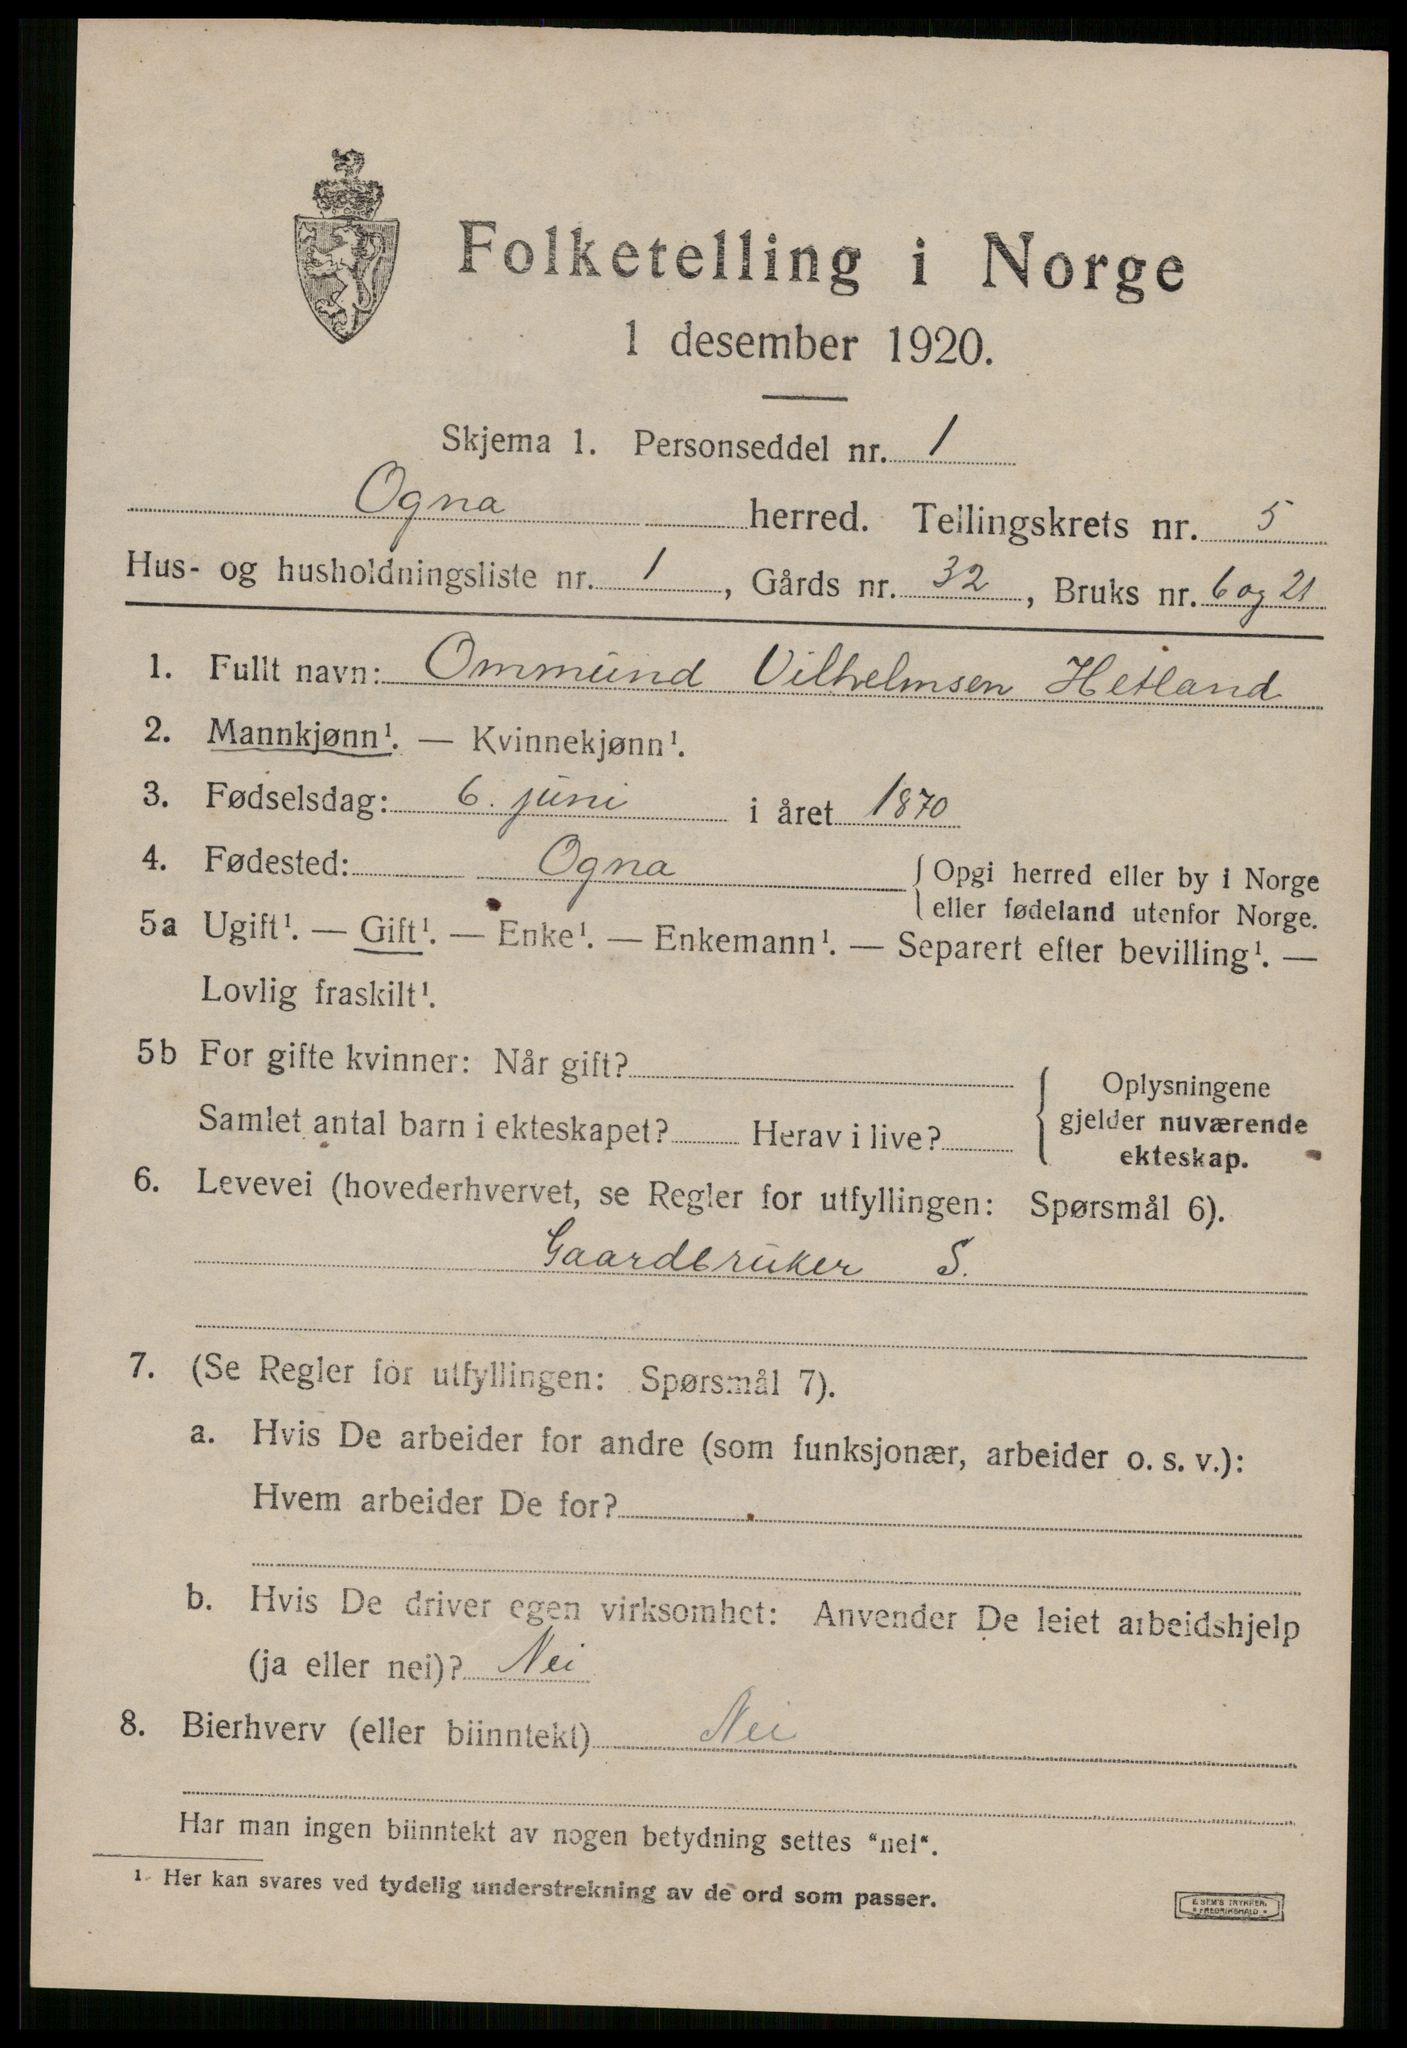 Folketelling i Norge
1 desember 1920.
Skjema 1. Personseddel nr. 1
Ogna herred. Tellingskrets nr. 5
Hus- og husholdningsliste nr. 1, Gårds nr. 32, Bruks nr. 6 og 21
1. Fullt navn: Ommund Vilhelmsen Hetland
2. Mannkjønn¹. — Kvinnekjønn¹.
3. Fødselsdag: 6. juni i året 1870
4. Fødested: Ogna { Opgi herred eller by i Norge
eller fødeland utenfor Norge.
5a Ugift¹. — Gift¹. — Enke¹. — Enkemann¹. — Separert efter bevilling¹. —
Lovlig fraskilt¹.
5b For gifte kvinner: Når gift?
Samlet antal barn i ekteskapet? Herav i live?
{ Oplysningene
gjelder nuværende
ekteskap.
6. Levevei (hovederhvervet, se Regler for utfyllingen: Spørsmål 6).
Gaardbruker S.
7. (Se Regler for utfyllingen: Spørsmål 7).
a. Hvis De arbeider for andre (som funksjonær, arbeider o. s. v.):
Hvem arbeider De for?
b. Hvis De driver egen virksomhet: Anvender De leiet arbeidshjelp
(ja eller nei)? Nei
8. Bierhverv (eller biinntekt) Nei
Har man ingen biinntekt av nogen betydning settes "nei".
¹. Her kan svares ved tydelig understrekning av de ord som passer.
E. SEM'S TRYKKERI.
* FREDRIKSHALD *